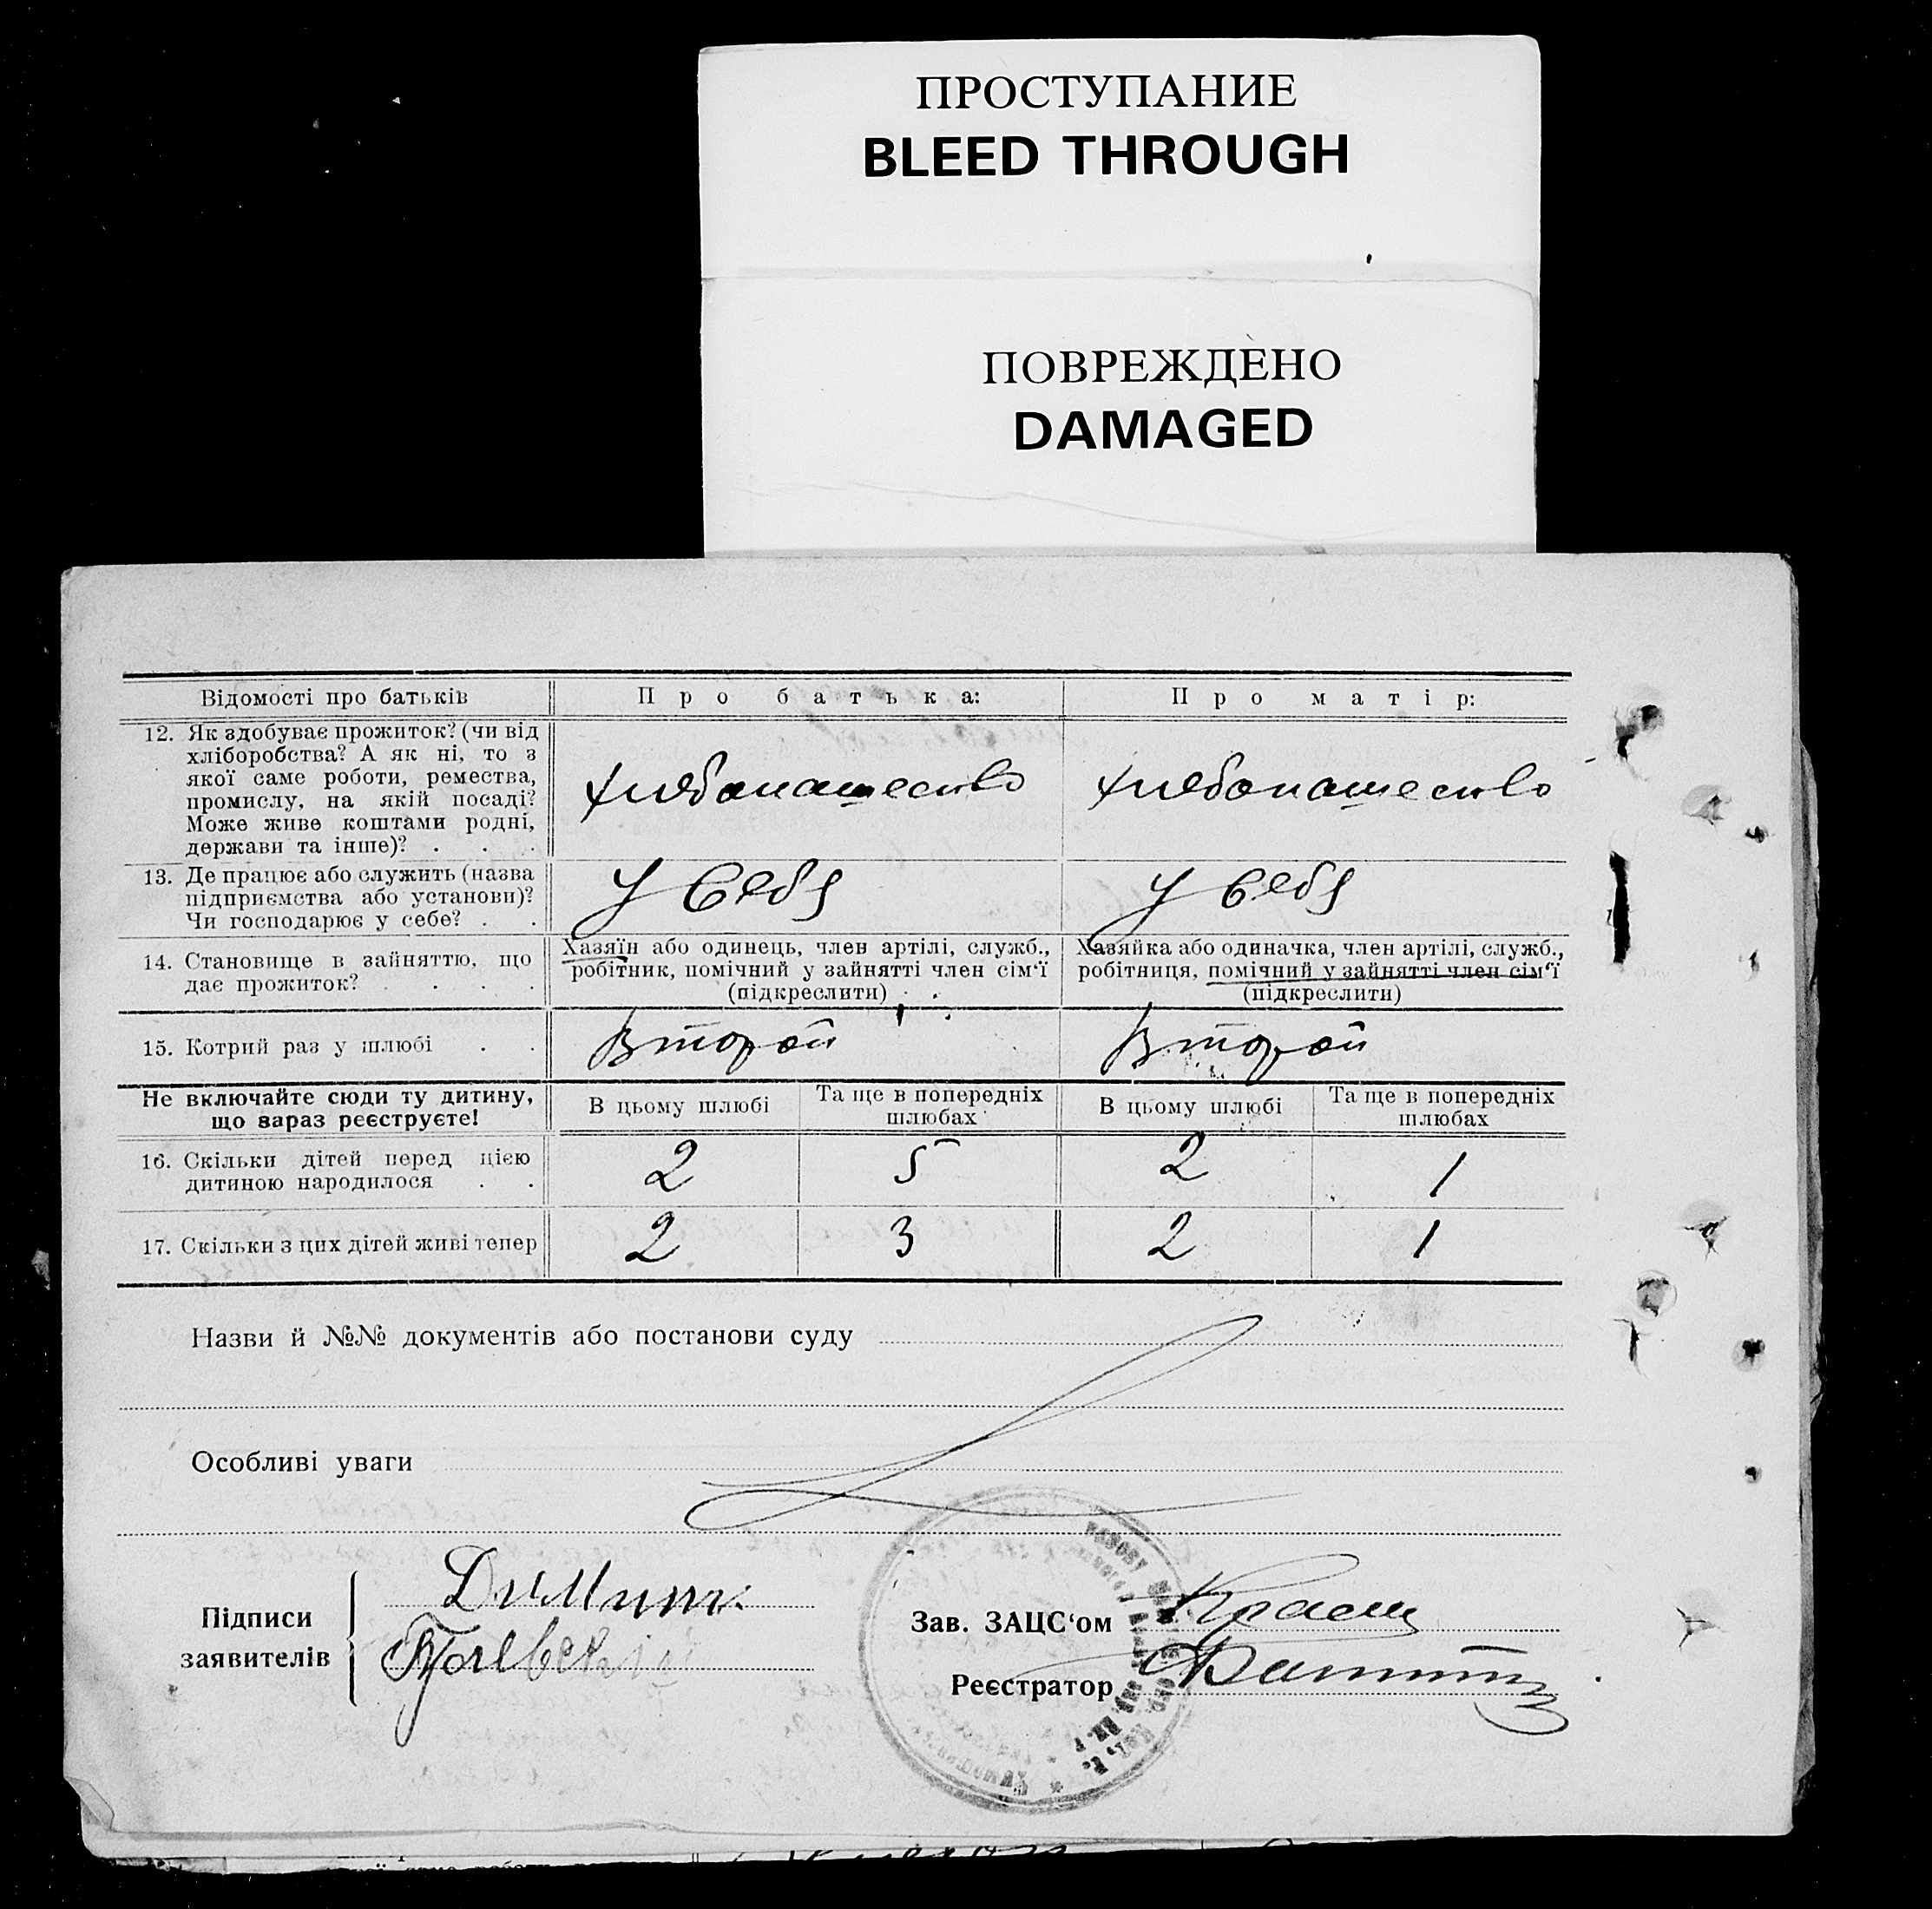 ПРОСТУПАНИЕ
BLEED THROUGH
ПОВРЕЖДЕНО
DAMAGED
Відомості про батьків
Про батька:
Про матір:
12. Як здобуває прожиток? (чи від
хліборобства? А як ні, то з
якої саме роботи, ремества,
промислу, на якій посаді?
Може живе коштами родні,
держави та інше)? . . .
хлебопашество
хлебопашество
13. Де працює або служить (назва
підприємства або установи)?
Чи господарює у себе? . .
У себя
У себя
14. Становище в зайняттю, що
дає прожиток? . . . .
Хазяїн або одинець, член артілі, служб.,
робітник, помічний у зайнятті член сім‘ї
(підкреслити) . .
Хазяйка або одиначка, член артілі, служб.,
робітниця, помічний у зайнятті член сім‘ї
(підкреслити)
15. Котрий раз у шлюбі . .
Второй
Второй
Не включайте сюди ту дитину,
що зараз реєструєте!
В цьому шлюбі
Та ще в попередніх
шлюбах
В цьому шлюбі
Та ще в попередніх
шлюбах
16. Скільки дітей перед цією
дитиною народилося . .
2
5
2
1
17. Скільки з цих дітей живі тепер
2
3
2
1
Назви й №№ документів або постанови суду
Особливі уваги
Підписи
заявителів
Зав. ЗАЦС‘ом
Реєстратор